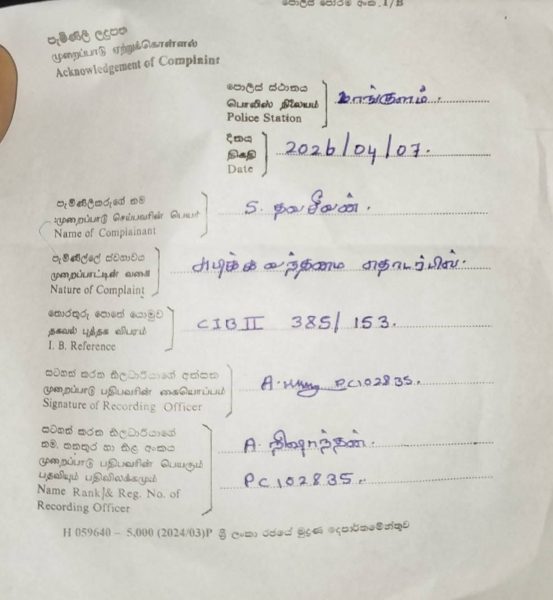 පොලිස් පෝරම අංක. 1/B
පැමිණිලි ලදුපත
முறைப்பாடு ஏற்றுக்கொள்ளல்
Acknowledgement of Complaint
පොලිස් ස්ථානය
பொலிஸ் நிலையம்
Police Station
மாங்குளம்.
දිනය
திகதி
Date
2026/04/07.
පැමිණිලිකරුගේ නම
முறைப்பாடு செய்பவரின் பெயர்
Name of Complainant
S. தவசீலன்.
පැමිණිල්ලේ ස්වභාවය
முறைப்பாட்டின் வகை
Nature of Complaint
வந்தமை தொடர்பில்.
තොරතුරු පොතේ යොමුව
தகவல் புத்தக விபரம்
I. B. Reference
CIB II 385/153.
සටහන් කරන නිලධාරියාගේ අත්සන
முறைப்பாடு பதிபவரின் கையொப்பம்
Signature of Recording Officer
A. PC102835.
සටහන් කරන නිලධාරියාගේ
නම, තනතුර හා නිල අංකය
முறைப்பாடு பதிபவரின் பெயரும்
பதவியும் பதிவிலக்கமும்
Name Rank & Reg. No. of
Recording Officer
A. நிஷாந்தன்.
PC102835.
H 059640 – 5,000 (2024/03)P ශ්‍රී ලංකා රජයේ මුද්‍රණ දෙපාර්තමේන්තුව